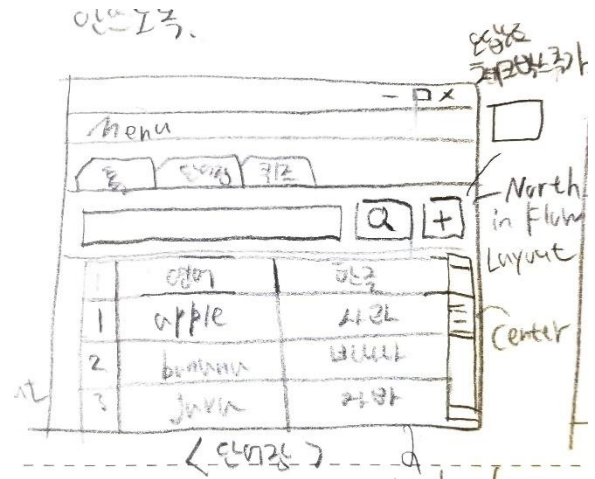 - □ X
Menu
홈 단어장 퀴즈
Q +
North
in Flow
Layout
영어 한글
1 apple 사과
2 banana 바나나
3 java 자바
Center
< 단어장 >